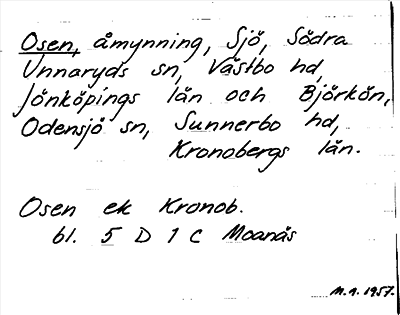 Osen, åmynning, Sjö, Södra
Unnaryds sn, Västbo hd,
Jönköpings län och Björkön,
Odensjö sn, Sunnerbo hd,
Kronobergs län.
Osen ek Kronob.
bl. 5 D 1 c Moanäs
M.A. 1957.